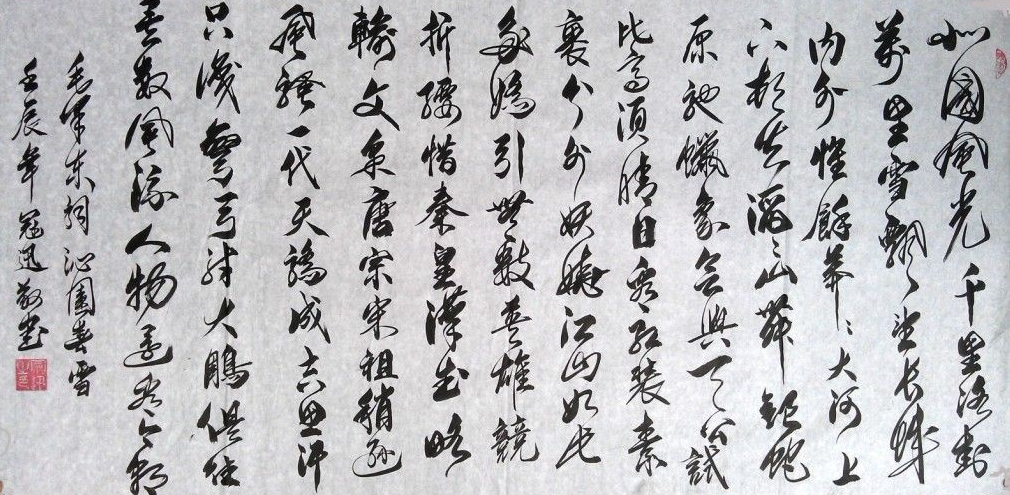 北國風光千里冰封
萬里雪飄望長城
内外惟餘莽々大河上
下頓失滔々山舞銀蛇
原馳蠟象欲與天公試
比高須晴日看紅裝素
裹分外妖嬈江山如此
多嬌引無數英雄競
折腰惜秦皇漢武略
輸文采唐宗宋祖稍遜
風騷一代天驕成吉思汗
只識彎弓射大鵰俱往
矣數風流人物還看今朝
毛澤東詞沁園春雪
壬辰年冠迅敬書